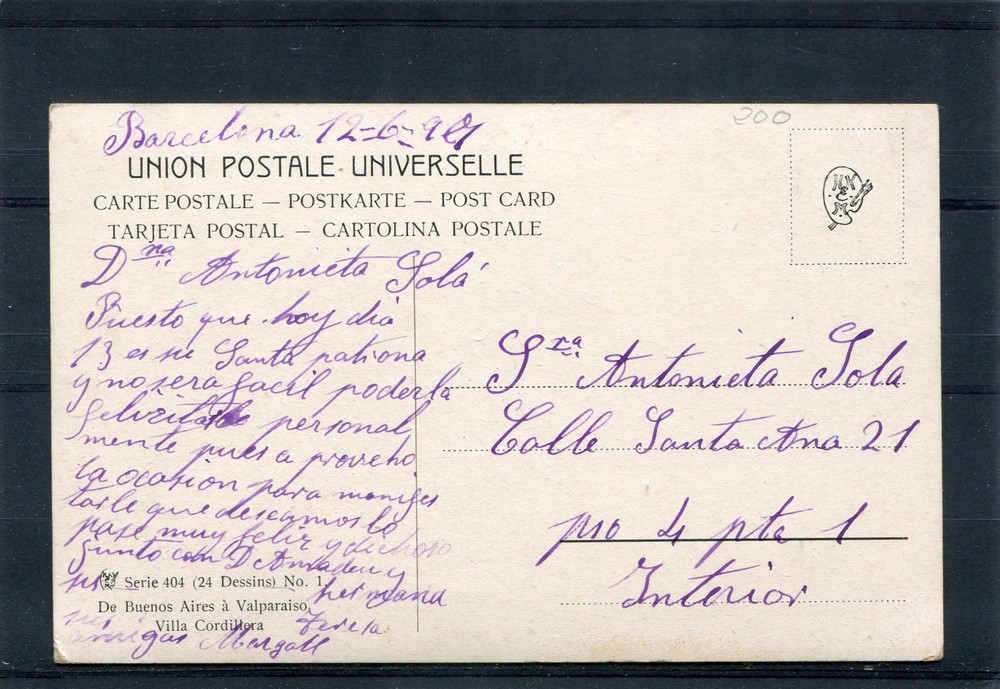 Barcelona 12=6=
200
UNION POSTALE UNIVERSELLE
CARTE POSTALE — POSTKARTE — POST CARD
TARJETA POSTAL — CARTOLINA POSTALE
D.na Antonieta Solá
Puesto que hoy dia
13 es su Santa patrona
y no sera facil poderla
personal
mente pues aprovecho
la ocasion para manifes
tarle que deseamos lo
pase muy feliz y dichoso
junto con D. Amadeu y
su hermana
Serie 404 (24 Dessins) No. 1
De Buenos Aires à Valparaiso
Villa Cordillera
Teresa
sus
amigas Margall
Sra. Antonieta Sola
Calle Santa Ana 21
piso 4 pta 1
Interior